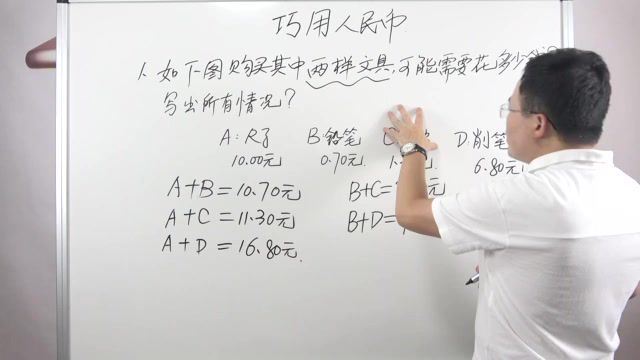 巧用人民币
1、如下图购买其中两样文具,可能需要花多少
写出所有情况?
A:尺子 B:铅笔 C D.削笔
10.00元 0.70元 1. 元 6.80元
A+B=10.70元 B+C= 元
A+C=11.30元 B+D=
A+D=16.80元.